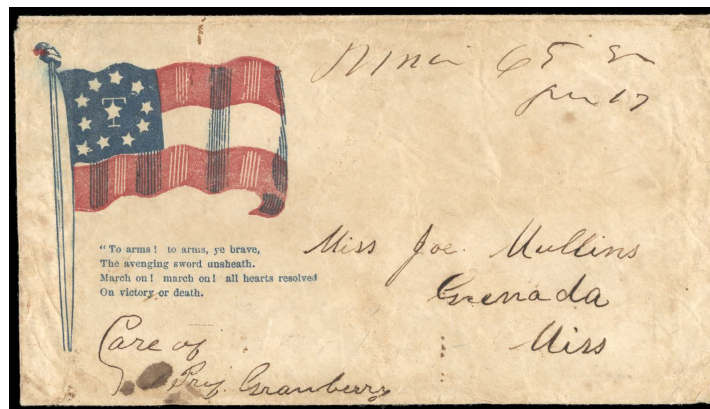 T
17
"To arms! to arms, ye brave,
The avenging sword unsheath.
March on! march on! all hearts resolved
On victory or death.
Miss Joe. Mullins
Grenada
Miss
Care of
Prof. Granberry